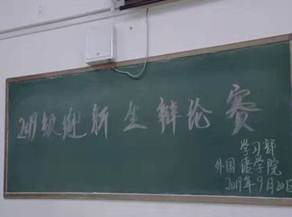 2019级迎新生辩论赛
学习部
外国语学院
2019年9月20日